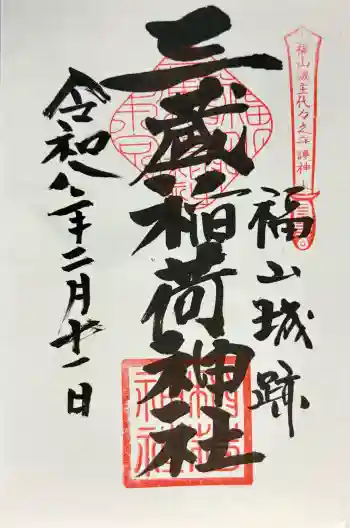 福山藩主代々之守護神
福山城跡
三蔵稲荷神社
令和八年二月十一日